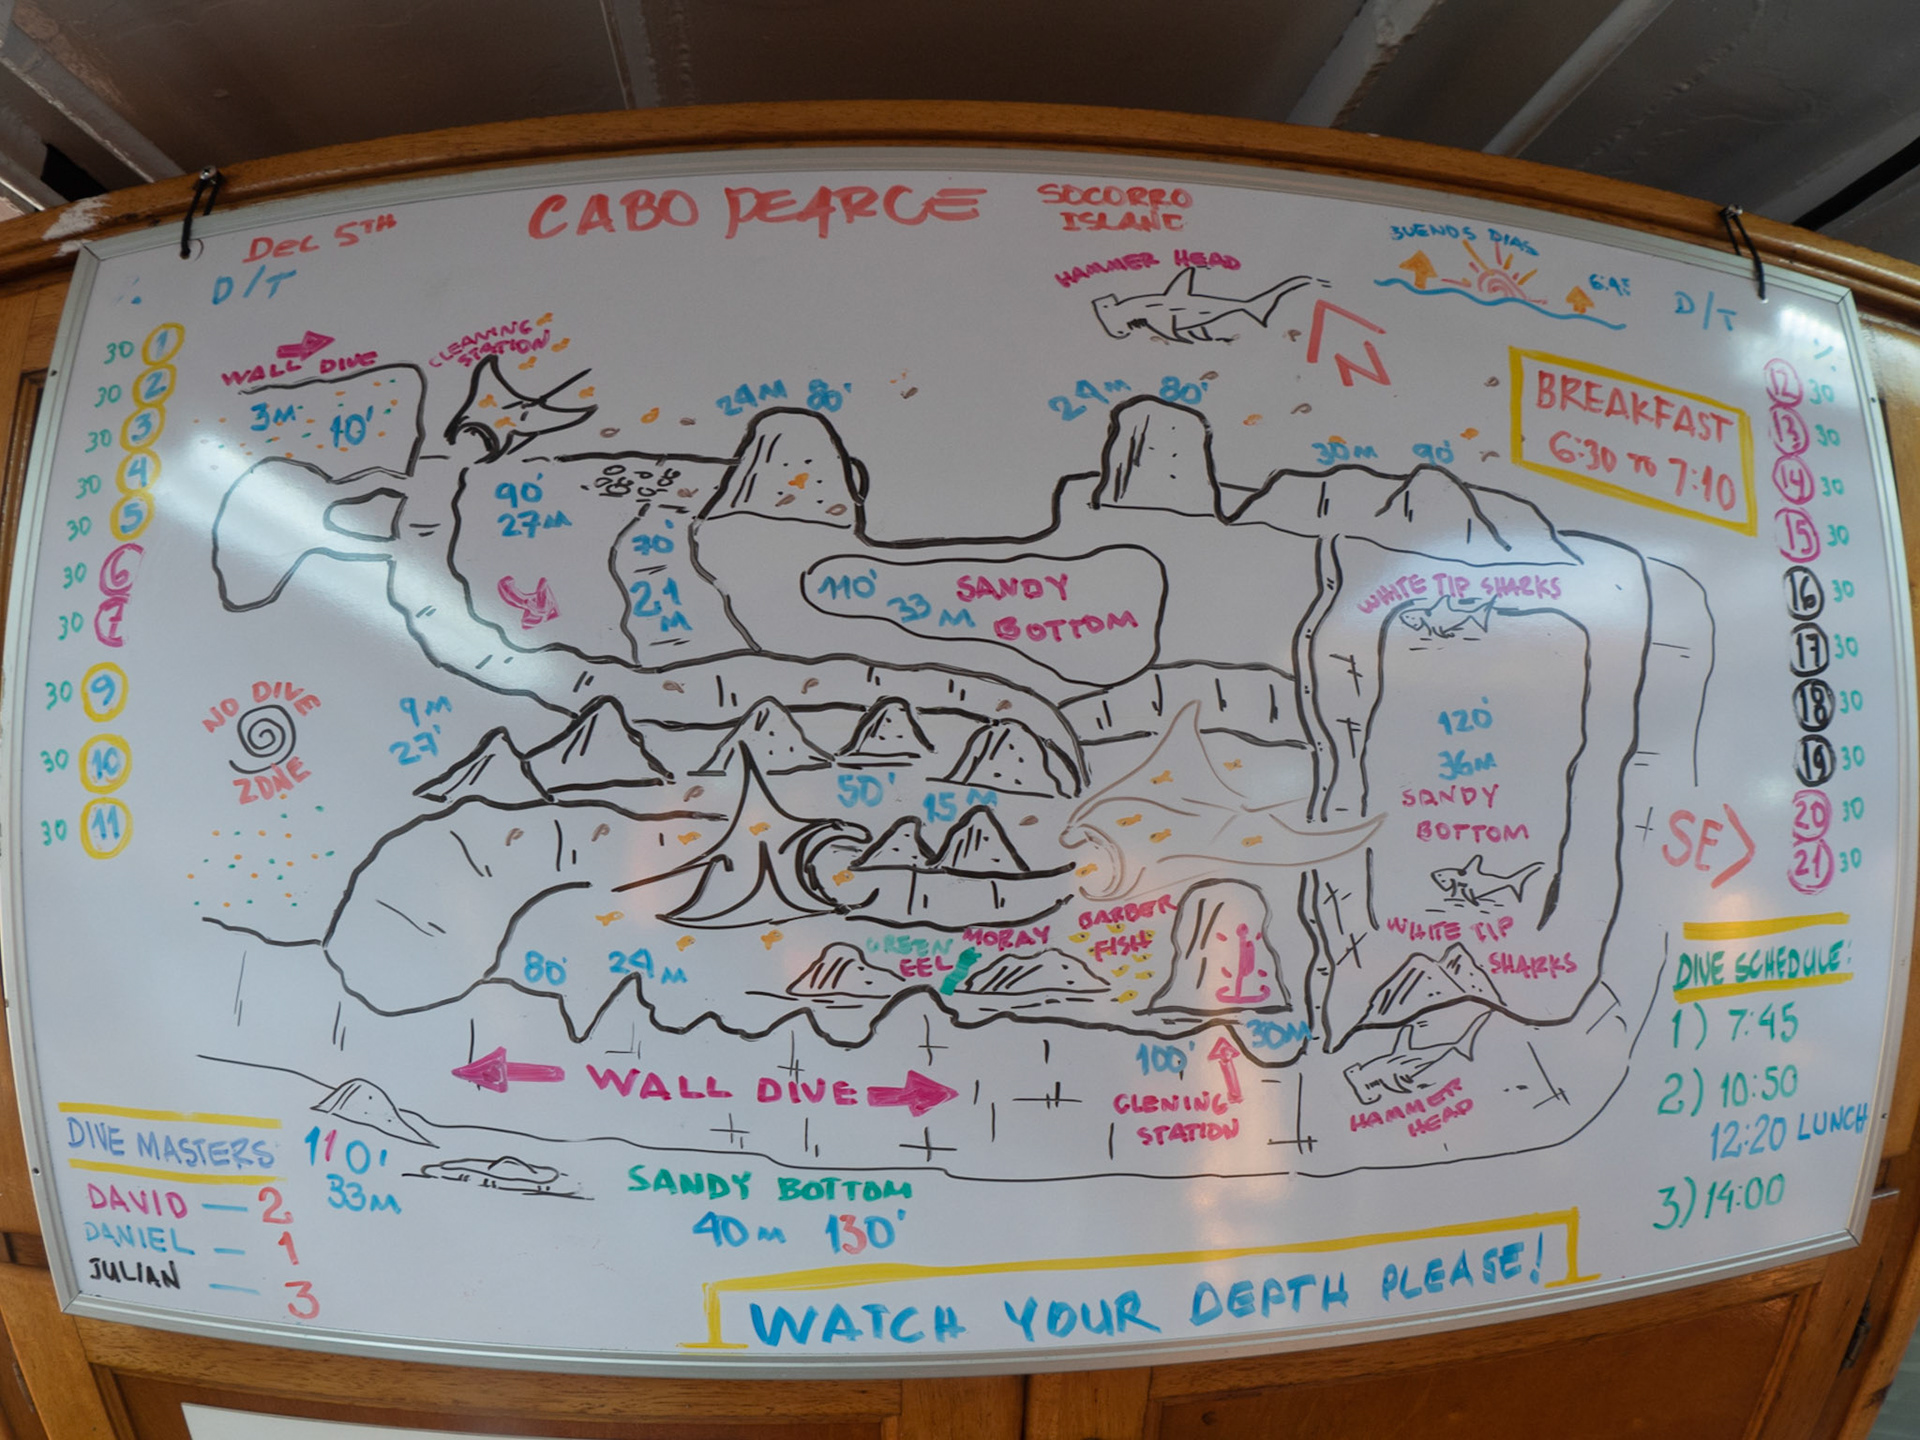 DEC 5TH
CABO PEARCE
SOCORRO
ISLAND
D/T
HAMMER HEAD
N
BUENOS DIAS
D/T
30 1
30 2
30 3
30 4
30 5
30 6
30 7
30 9
30 10
30 11
WALL DIVE
3M 10'
CLEANING
STATION
24M 80'
24M 80'
30M 90'
BREAKFAST
6:30 TO 7:10
12 30
13 30
14 30
15 30
16 30
17 30
18 30
19 30
20 30
21 30
90'
27M
70'
21
M
110'
33 M
SANDY
BOTTOM
WHITE TIP SHARKS
NO DIVE
ZONE
9M
27'
50' 15M
120'
36M
SANDY
BOTTOM
SE>
WHITE TIP
SHARKS
80' 24M
GREEN
MORAY
EEL
BARBER
FISH
100' 30M
CLENING
STATION
HAMMER
HEAD
WALL DIVE
DIVE SCHEDULE:
1) 7:45
2) 10:50
12:20 LUNCH
3) 14:00
DIVE MASTERS
DAVID — 2
DANIEL — 1
JULIAN — 3
110'
33M
SANDY BOTTOM
40M 130'
WATCH YOUR DEPTH PLEASE!